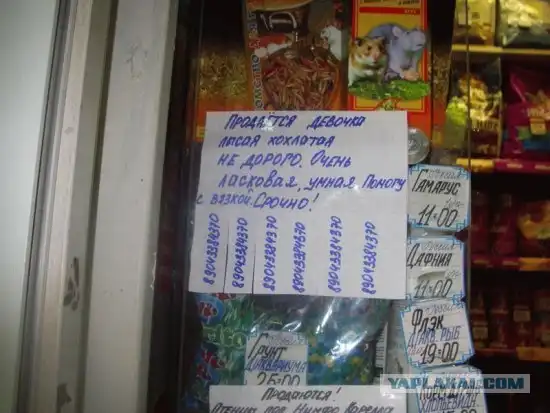 ПРОДАЕТСЯ ДЕВОЧКА
ЛЫСАЯ ХОХЛАТАЯ
НЕ ДОРОГО. ОЧЕНЬ
ЛАСКОВАЯ, УМНАЯ ПОМОГУ
С ВЯЗКОЙ. СРОЧНО!
89043384370
89043384370
89043384370
89043384370
89043384370
89043384370
ГАМАРУС
11=00
ДАФНИЯ
11=00
ФЛЭК
Д/АКВ. РЫБ
19=00
ГРУНТ
Д/АКВАРИУМА
25=00
ПРОДАЮТСЯ!
YAPLAKAL.COM